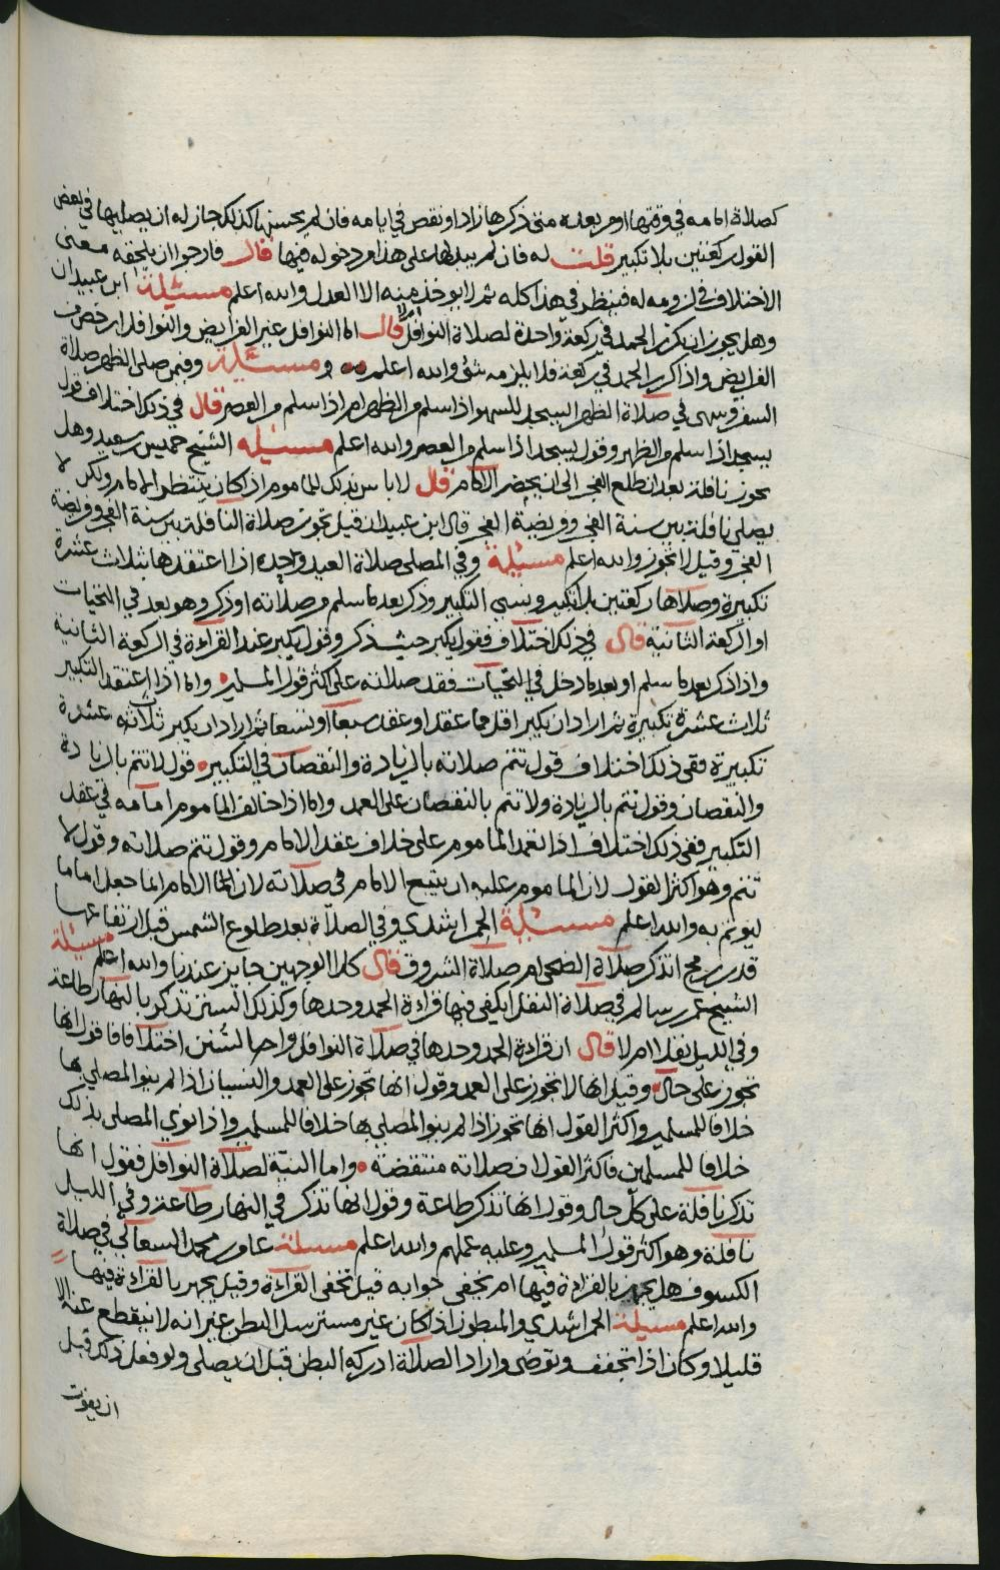 كصلاة امامه في وقتها او من بعده متى ذكرها زاد او نقص في ايامه فان لم يحسنها كذلك جاز له ان يصليها في بعض
القول ركعتين بلا تكبير قلت له فان لم يبدلها على هذا بعد دخوله فيها قال فارجوا ان يلحقه معنى
الاختلاف في لزومه له فينظر في هذا كله ثم لا يوخذ منه الا العدل والله اعلم مسئلة ابن عبيدان
وهل يجوز ان يكرر الحمد في ركعة واحدة لصلاة النوافل ام لا قال اما النوافل غير الفرايض والنوافل ارخص من
الفرايض واذا كرر الحمد في ركعة فلا يلزمه شئ والله اعلم ومسئلة وفيمن صلى الظهر صلاة
السفر وسهى في صلاة الظهر ايسجد للسهو اذا سلم من الظهر ام اذا سلم من العصر قال في ذلك اختلاف قول
يسجد اذا سلم من الظهر وقول يسجد اذا سلم من العصر والله اعلم مسئله الشيخ خميس بن سعيد وهل
يجوز نافلة بعد ان طلع الفجر الى ان يحضر الامام قال لا باس بذلك للماموم اذا كان ينتظر الامام ولكن لا
يصلي نافلة بين سنة الفجر وفريضة الفجر قال ابن عبيدان قيل تجوز صلاة النافلة بين سنة الفجر وفريضة
الفجر وقيل لا تجوز والله اعلم مسئيلة وفي المصلي صلاة العيد وحده اذا اعتقدها بثلاث عشرة
تكبيرة وصلاها ركعتين بلا تكبير ونسي التكبير وذكر بعد ما سلم من صلاته او ذكر وهو بعد في التحيات
او الركعة الثانية قال في ذلك اختلاف فقول يكبر حيث ذكر وقول يكبر عند القراءة في الركعة الثانية
واذا ذكر بعد ما سلم او بعد ما دخل في التحيات فقد صلاته على اكثر قول المسلمين واما اذا اعتقد التكبير
ثلاث عشرة تكبيرة ثم اراد ان يكبر اقل مما عقد او عقد سبعا او تسعا ثم اراد ان يكبر ثلاثة عشرة
تكبيرة ففي ذلك اختلاف قول تتم صلاته بالزيادة والنقصان في التكبير قول لا تتم بالزيادة
والنقصان وقول تتم بالزيادة ولا تتم بالنقصان على العمد واما اذا خالف الماموم امامه في عقد
التكبير ففي ذلك اختلاف اذا تعمد الماموم على خلاف عقد الامام وقول تتم صلاته وقول لا
تتم وهو اكثر القول لان الماموم عليه ان يتبع الامام في صلاته لان انما الامام انما جعل اماما
ليوتم به والله اعلم مسئيلة الحمراشدي وفي الصلاة بعد طلوع الشمس قبل ارتفاعها
قدر رمح اتذكر صلاة الضحى ام صلاة الشروق قال كلا الوجهين جايز عندنا والله اعلم مسئيلة
الشيخ عمر بن سالم في صلاة النفل ايكفي فيها قراءة الحمد وحدها وكذلك السنن تذكر بالنهار طاعة
وفي الليل نفلا ام لا قال ان قراءة الحمد وحدها في صلاة النوافل واحيا السُنن اختلافا فاقول انها
تجوز على حال وقيل انها لا تجوز على العمد وقول انها تجوز على العمد والنسيان اذا لم ينو المصلي بها
خلافا للمسلمين واكثر القول انها تجوز اذا لم ينو المصلي بها خلافا للمسلمين واذا نوى المصلي بذلك
خلافا للمسلمين فاكثر القول ان صلاته منتقضة واما النية لصلاة النوافل فقول انها
تذكر نافلة على كل حال وقول انها تذكر طاعة وقول انها تذكر في النهار طاعة وفي الليل
نافلة وهو اكثر قول المسلمين وعليه عملهم والله اعلم مسئلة عامر بن محمد السعالي في صلاة
الكسوف هل يجهر بالقراءة فيها ام تخفى جوابه قيل تخفى القراءة وقيل يجهر بالقراءة فيها
والله اعلم مسيلة الحمراشدي والمبطون اذا كان غير مسترسل البطن غير انه لا ينقطع عنه الا
قليلا وكان اذا تجفف وتوضى واراد الصلاة ادركه البطن قبل ان يصلي ولو فعل ذلك قبل
ان يفوت